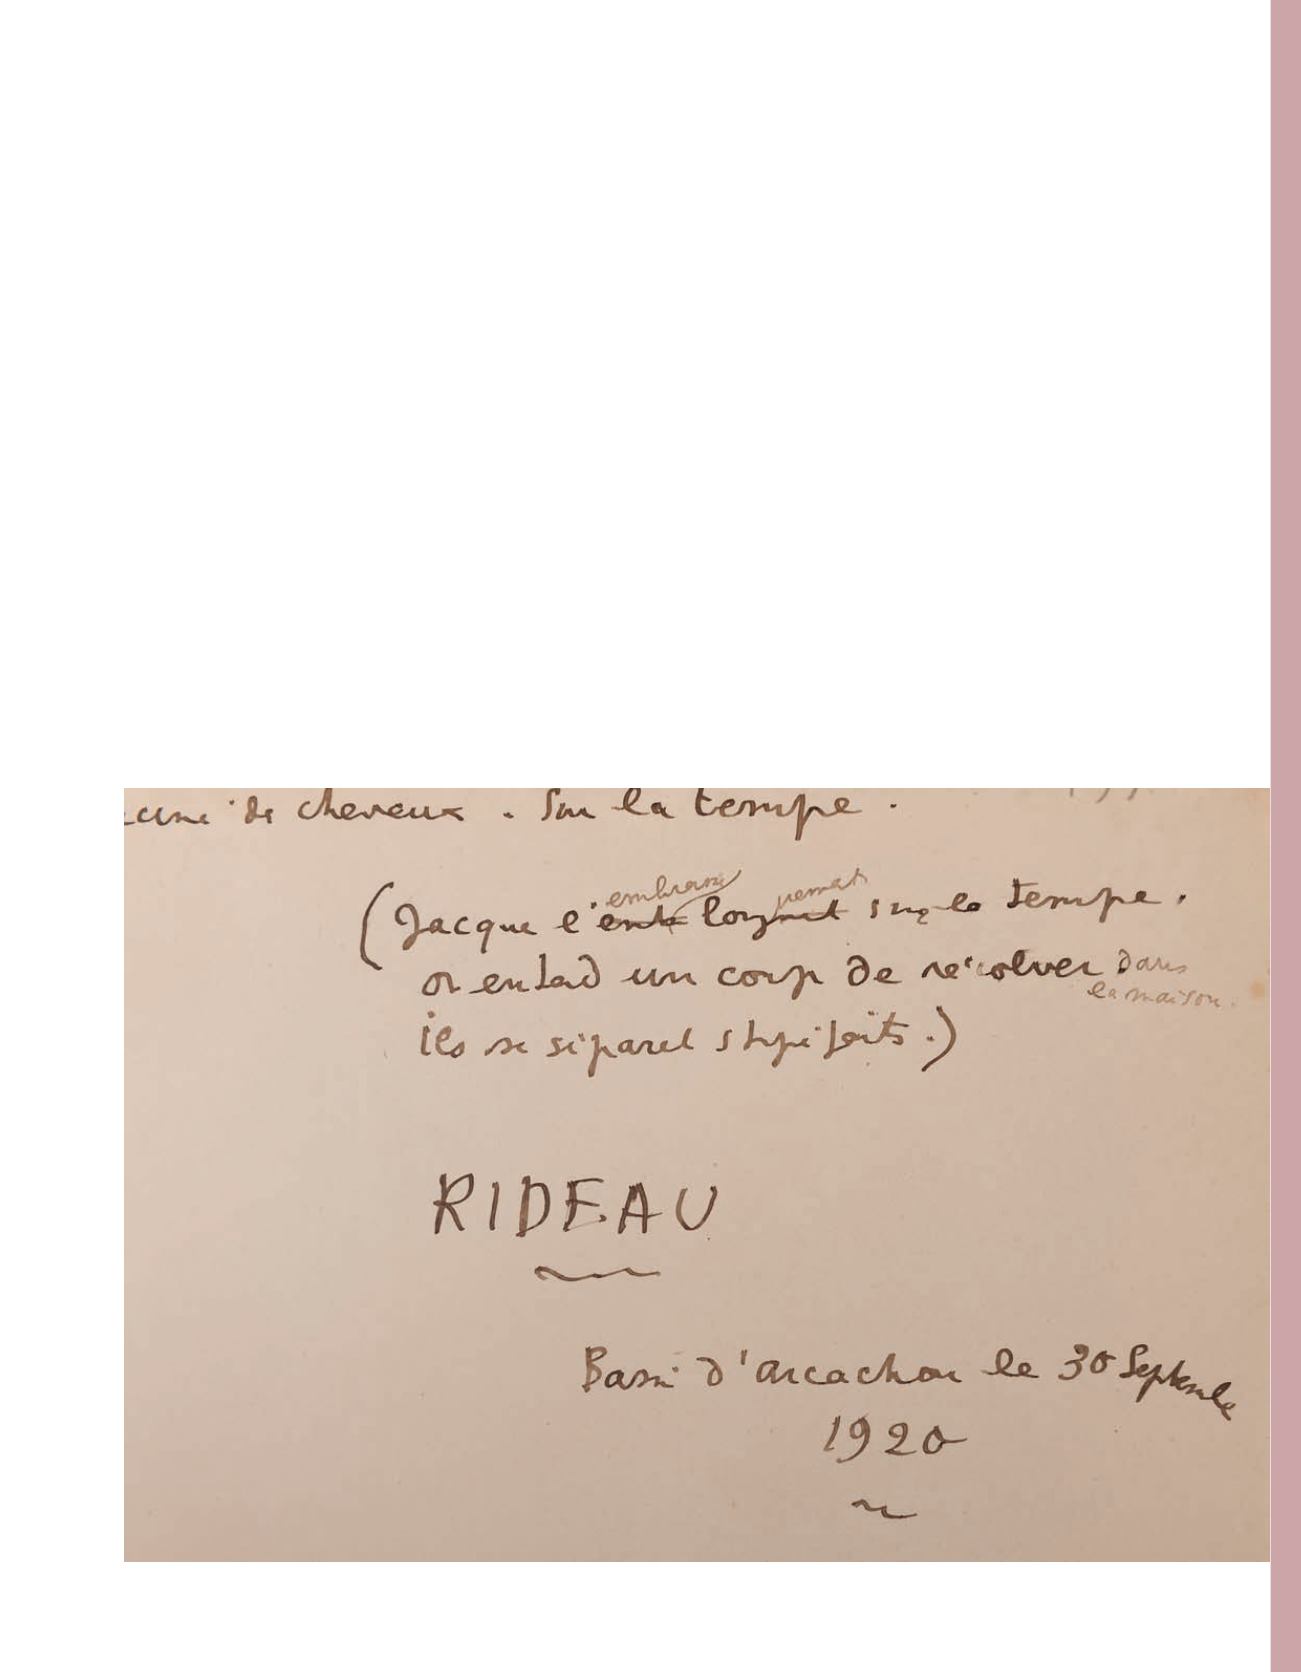 de cheveux. Sur la tempe.
embrasse
(Jacque l' longuet sur la tempe.
on entend un coup de revolver dans
la maison.
ils se séparent stupéfaits.)
RIDEAU
Bassin d'arcachon le 30 Septembre
1920